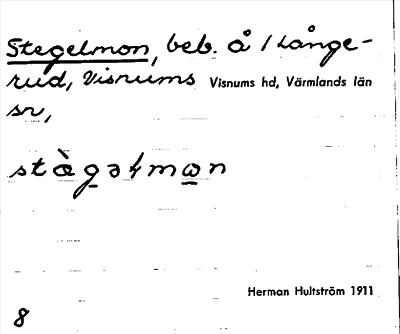 Stegelmon, beb. å /Långe-
rud, Visnums Visnums hd, Värmlands län
sn,
stὰgəɫmωn
Herman Hultström 1911
8